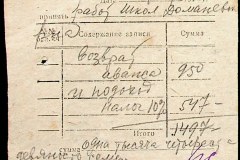 работ Школ Доманев
принять
Содержание записи Сумма
Возврат
аванса 950
и подоход
налог 10% 547-
Итого 1497-
одна тысяча четыреста
девяносто семь